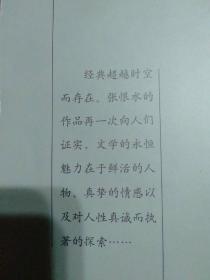 经典超越时空
而存在。张恨水的
作品再一次向人们
证实，文学的永恒
魅力在于鲜活的人
物、真挚的情感以
及对人性真诚而执
著的探索……